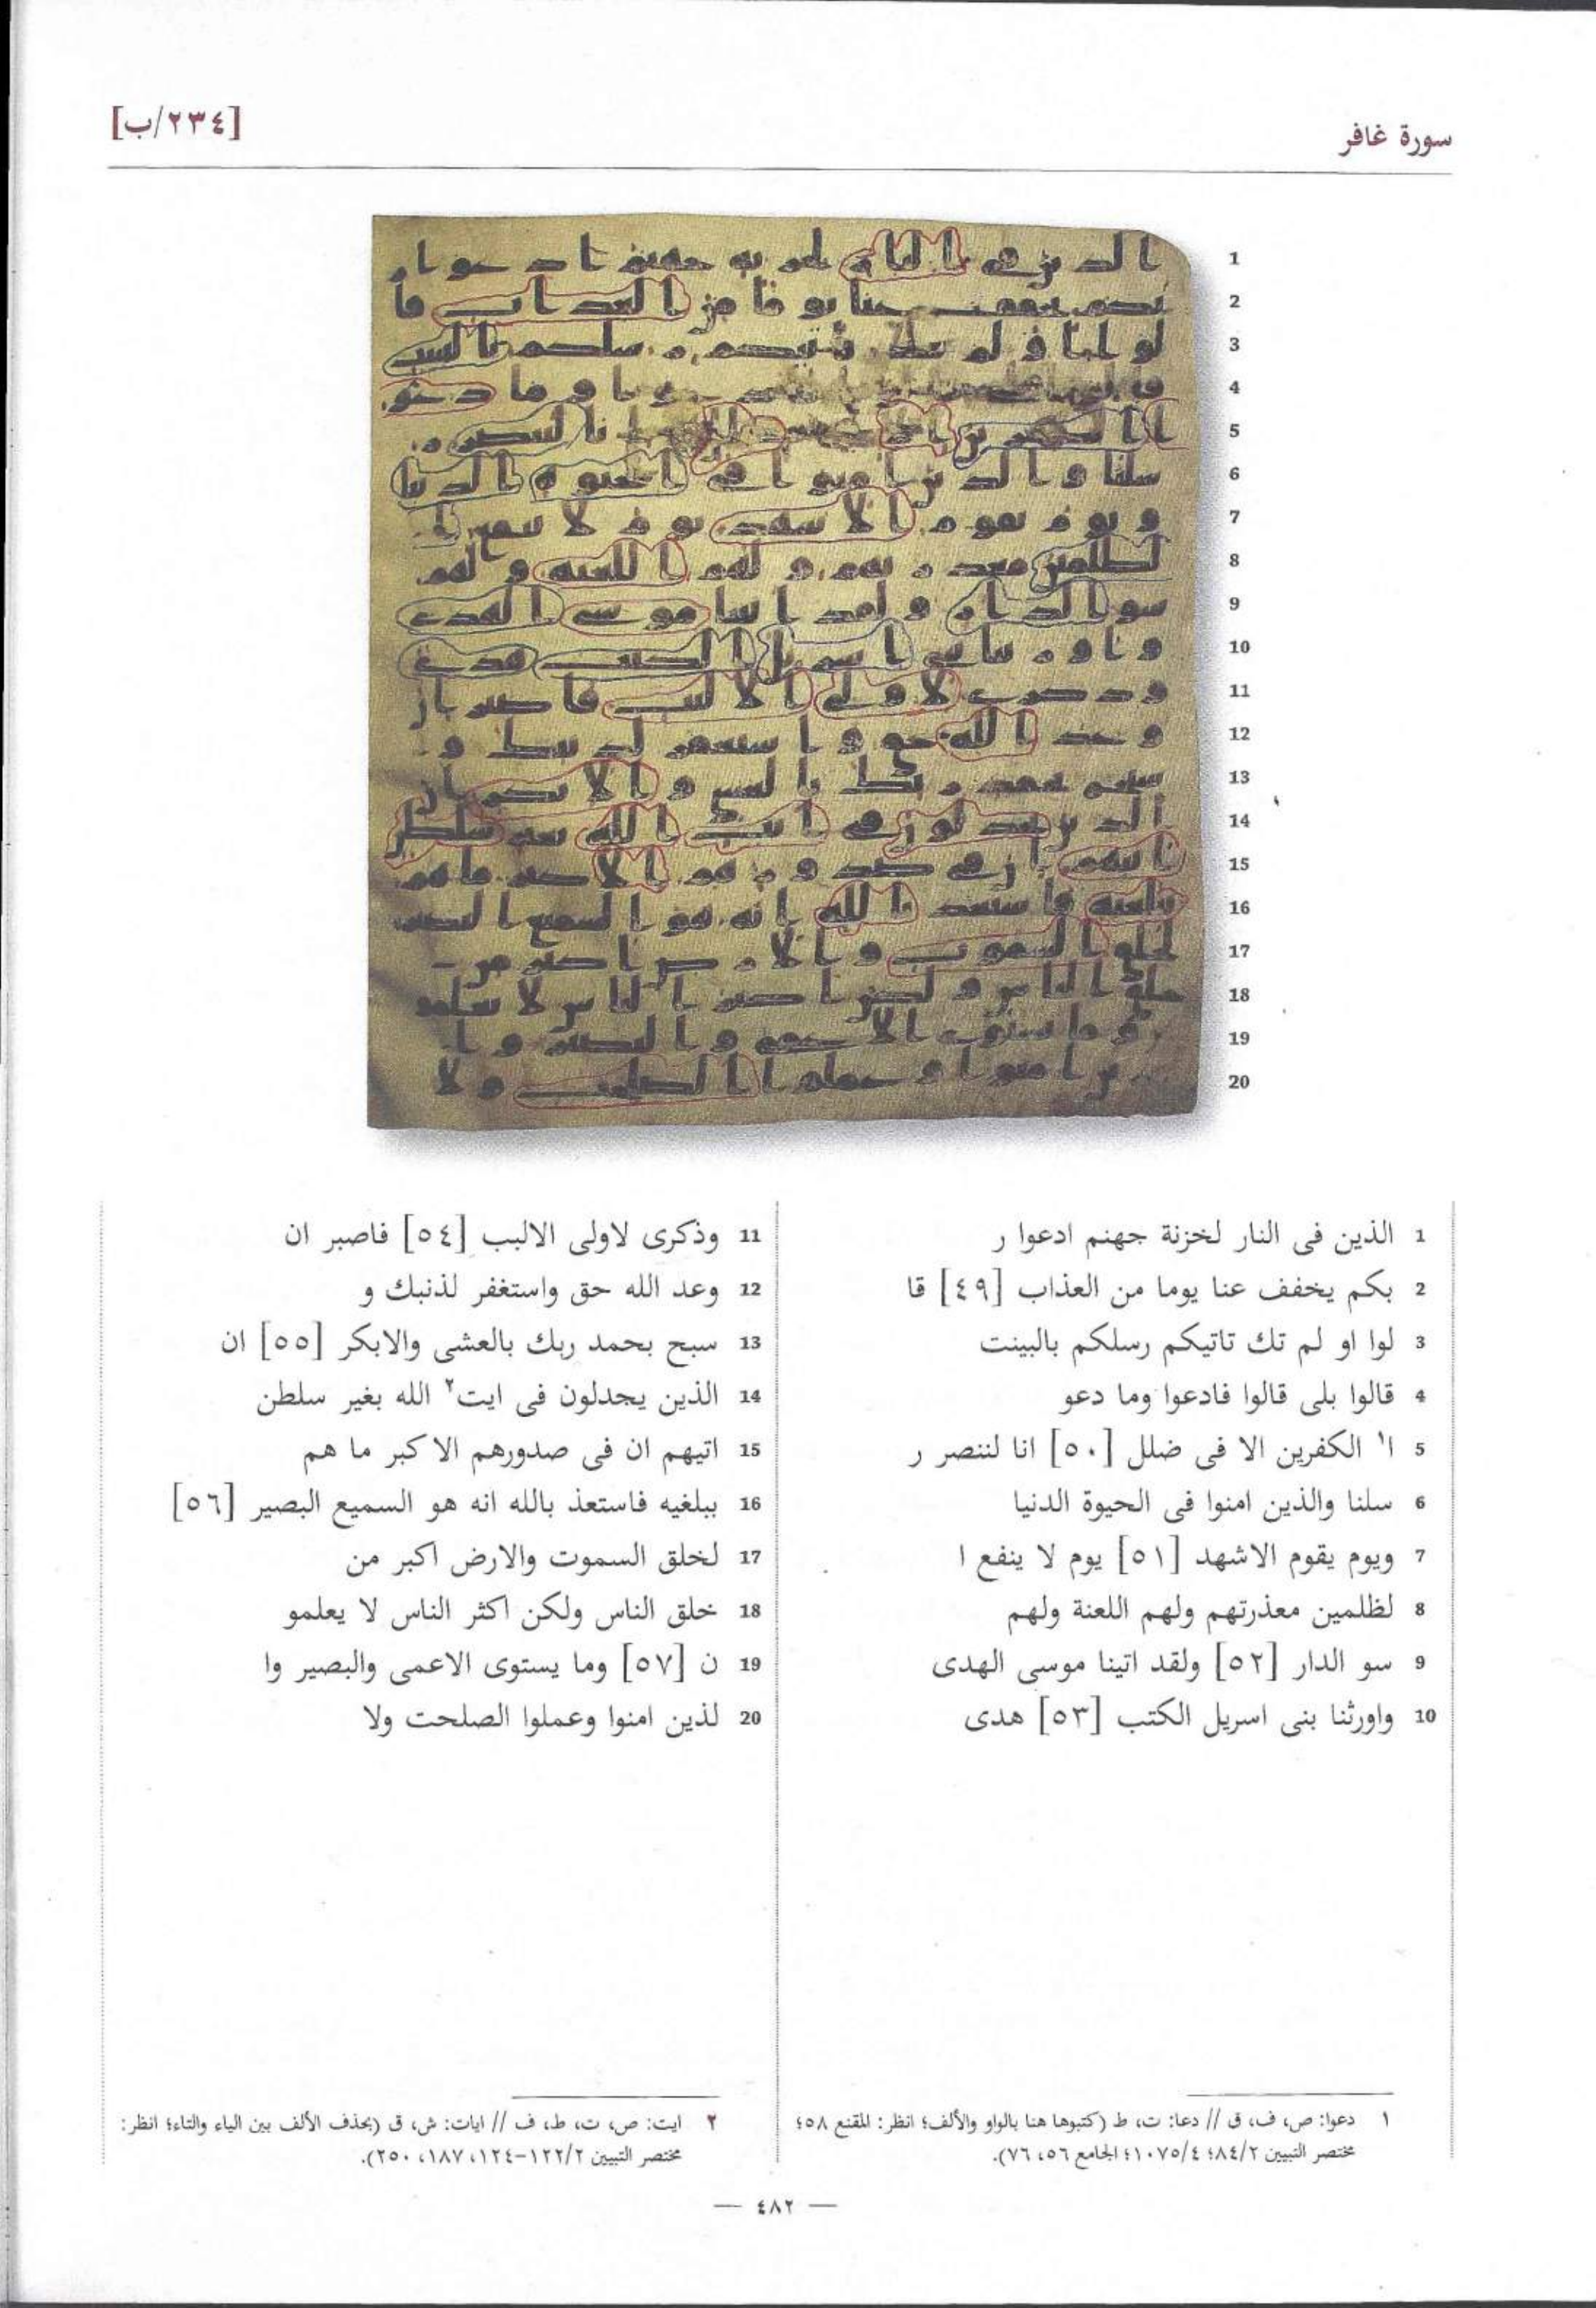 سورة غافر
[٢٣٤/ب]
1
2
3
4
5
6
7
8
9
10
11
12
13
14
15
16
17
18
19
20
1 الذين فى النار لخزنة جهنم ادعوا ر
2 بكم يخفف عنا يوما من العذاب [٤٩] قا
3 لوا او لم تك تاتيكم رسلكم بالبينت
4 قالوا بلى قالوا فادعوا وما دعو
5 ا١ الكفرين الا فى ضلل [٥٠] انا لننصر ر
6 سلنا والذين امنوا فى الحيوة الدنيا
7 ويوم يقوم الاشهد [٥١] يوم لا ينفع ا
8 لظلمين معذرتهم ولهم اللعنة ولهم
9 سو الدار [٥٢] ولقد اتينا موسى الهدى
10 واورثنا بنى اسريل الكتب [٥٣] هدى
11 وذكرى لاولى الالبب [٥٤] فاصبر ان
12 وعد الله حق واستغفر لذنبك و
13 سبح بحمد ربك بالعشى والابكر [٥٥] ان
14 الذين يجدلون فى ايت٢ الله بغير سلطن
15 اتيهم ان فى صدورهم الا كبر ما هم
16 ببلغيه فاستعذ بالله انه هو السميع البصير [٥٦]
17 لخلق السموت والارض اكبر من
18 خلق الناس ولكن اكثر الناس لا يعلمو
19 ن [٥٧] وما يستوى الاعمى والبصير وا
20 لذين امنوا وعملوا الصلحت ولا
١ دعوا: ص، ف، ق // دعا: ت، ط (كتبوها هنا بالواو والألف؛ انظر: المقنع ٥٨؛
مختصر التبيين ٨٤/٢؛ ١٠٧٥/٤؛ الجامع ٥٦، ٧٦).
٢ ايت: ص، ت، ط، ف // ايات: ش، ق (بحذف الألف بين الياء والتاء؛ انظر:
مختصر التبيين ١٢٢/٢-١٢٤، ١٨٧، ٢٥٠).
— ٤٨٢ —